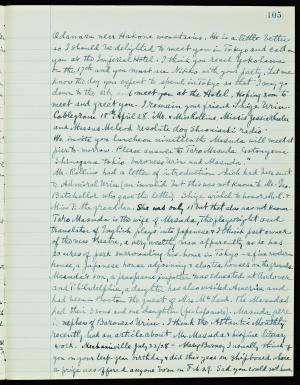 105
Odawara near Hakone mountains. He is a little better
so I should be delighted to meet you in Tokyo and call on
you at the Imperial Hotel. I think you reach Yokohama
on the 17th and you must see Nikko with your party. Let me
know the day you expect to spend in Tokyo so that I may go
down to the city and meet you at the Hotel. Hoping soon to
meet and greet you. I remain your friend Shige Uriu.
Cablegram 18th April 28. Mr.
and resolute day radio.
We invite you luncheon nineteenth Masuda will meet at
pier to-morrow. Please answer to Taro Masuda Gotenyama
Shinagawa Tokio Baroness Uriu and Masuda."
Mr. Rollins had a letter of introduction which had been sent
to Admiral Uriu (an invalid but this was not known to Mr. Geo.
Batchellor who gave the letter). Shige wished to honor Mr. R.
His grandson. She was only 11 but that also was not known.
Taro Masuda is the wife of Masuda, the playwright and
translator of English plays into Japanese & I think part owner
of the new theatre, a very wealthy man apparently as he has
20 acres of park surrounding his home in Tokyo - a fine modern
house, a Japanese house adjoining & also tea houses on the grounds.
Masuda's son, a prosperous importer was educated at Andover,
and Philadelphia, a daughter has also visited America and
had been in Boston the guest of Mrs. The Masudas
had their 2 sons and one daughter. Masuda here
is nephew of Baroness Uriu. I think the Atlantic Monthly
recently had an article about Mr. Masuda & his fine literary
work. Mechanicville July 23/28 - Mary Barnes, I usually think of
you on your leap-year birthday & did this year on shipboard where
a prize was offered anyone born on Feb 29. Sad you could not have